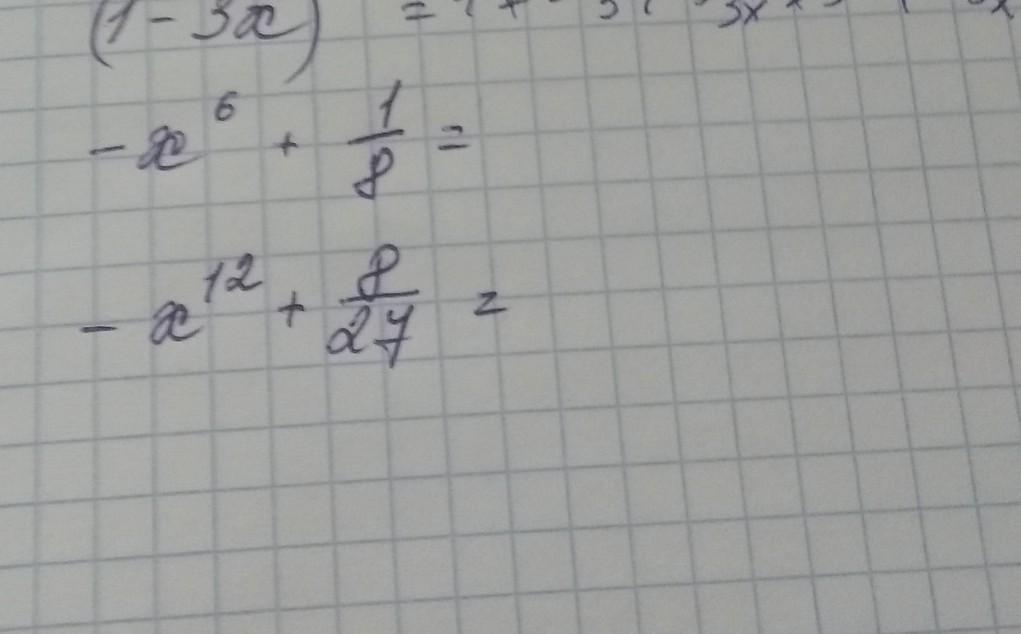 (1 - 3x) =
- x^6 + 1/8 =
- x^12 + 8/27 =